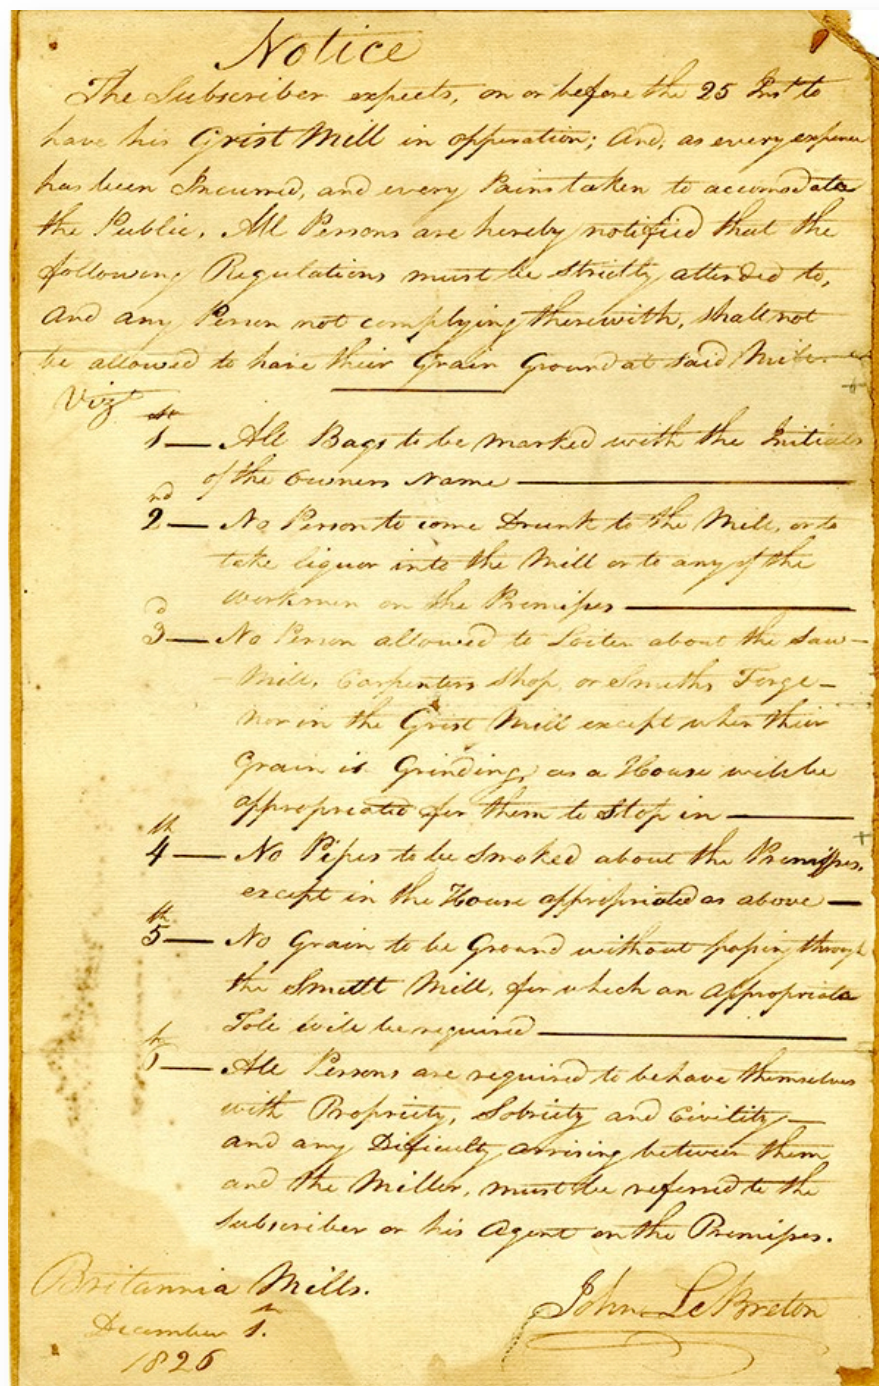 Notice
The Subscriber expects, on or before the 25 Inst to
have his Grist Mill in opperation; And, as every expence
has been Incurred, and every Pains taken to accomodate
the Public, All Persons are hereby notified that the
following Regulations must be strictly attended to,
And any Person not complying therewith, shall not
be allowed to have their Grain Ground at said Mill
Vizt
1st — All Bags to be marked with the Initials
of the Owners Name —
2nd — No Person to come Drunk to the Mill, or to
take liquor into the Mill or to any of the
workmen on the Premises —
3d — No Person allowed to Loiter about the Saw-
-Mill, Carpenters Shop, or Smiths Forge -
nor in the Grist Mill except when their
Grain is Grinding, as a House will be
appropriated for them to Stop in —
4th — No Pipes to be smoked about the Premises,
except in the House appropriated as above —
5th — No Grain to be Ground without passing through
the Smutt Mill, for which an appropriate
Tole will be required —
6th — All Persons are required to behave themselves
with Propriety, Sobriety and Civility —
and any Dificulty arrising between them
and the Miller, must be referred to the
Subscriber or his Agent on the Premises.
Britannia Mills.
December 1st.
1826
John LeBreton